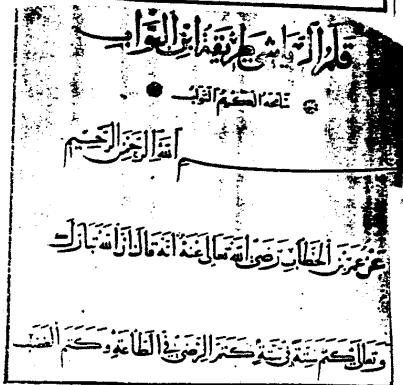 قلم الرياشي طريقة ابن البواب
بسم الله الرحمن الرحيم
عن عمر بن الخطاب رضي الله تعالى عنه انه قال ان الله تبارك
وتعالى كتم ستة في ستة كتم الرضى في الطاعة وكتم الغضب